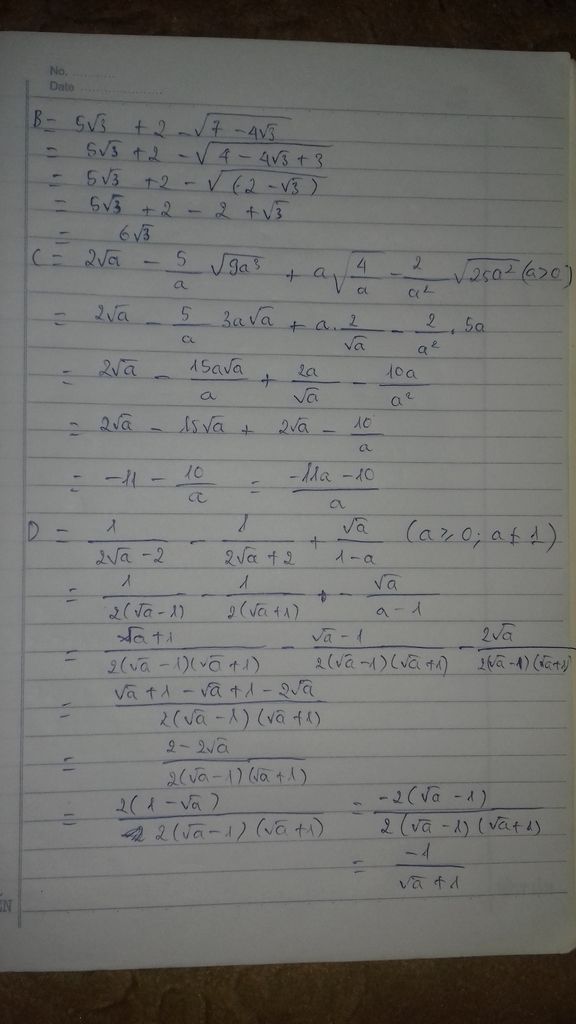 No. ..........
Date ....................
B = 5√3 + 2 - √(7 - 4√3)
= 5√3 + 2 - √(4 - 4√3 + 3)
= 5√3 + 2 - √((2 - √3))
= 5√3 + 2 - 2 + √3
= 6√3
C = 2√a - 5/a √(9a³) + a√(4/a) - 2/a² √(25a²) (a>0)
= 2√a - 5/a 3a√a + a. 2/√a - 2/a² . 5a
= 2√a - 15a√a/a + 2a/√a - 10a/a²
= 2√a - 15√a + 2√a - 10/a
= -11 - 10/a = (-11a - 10)/a
D = 1/(2√a - 2) - 1/(2√a + 2) + √a/(1 - a) (a ≥ 0; a ≠ 1)
= 1/(2(√a - 1)) - 1/(2(√a + 1)) - √a/(a - 1)
= (√a + 1)/(2(√a - 1)(√a + 1)) - (√a - 1)/(2(√a - 1)(√a + 1)) - 2√a/(2(√a - 1)(√a + 1))
= (√a + 1 - √a + 1 - 2√a)/(2(√a - 1)(√a + 1))
= (2 - 2√a)/(2(√a - 1)(√a + 1))
= 2(1 - √a)/(2(√a - 1)(√a + 1)) = -2(√a - 1)/(2(√a - 1)(√a + 1))
= -1/(√a + 1)